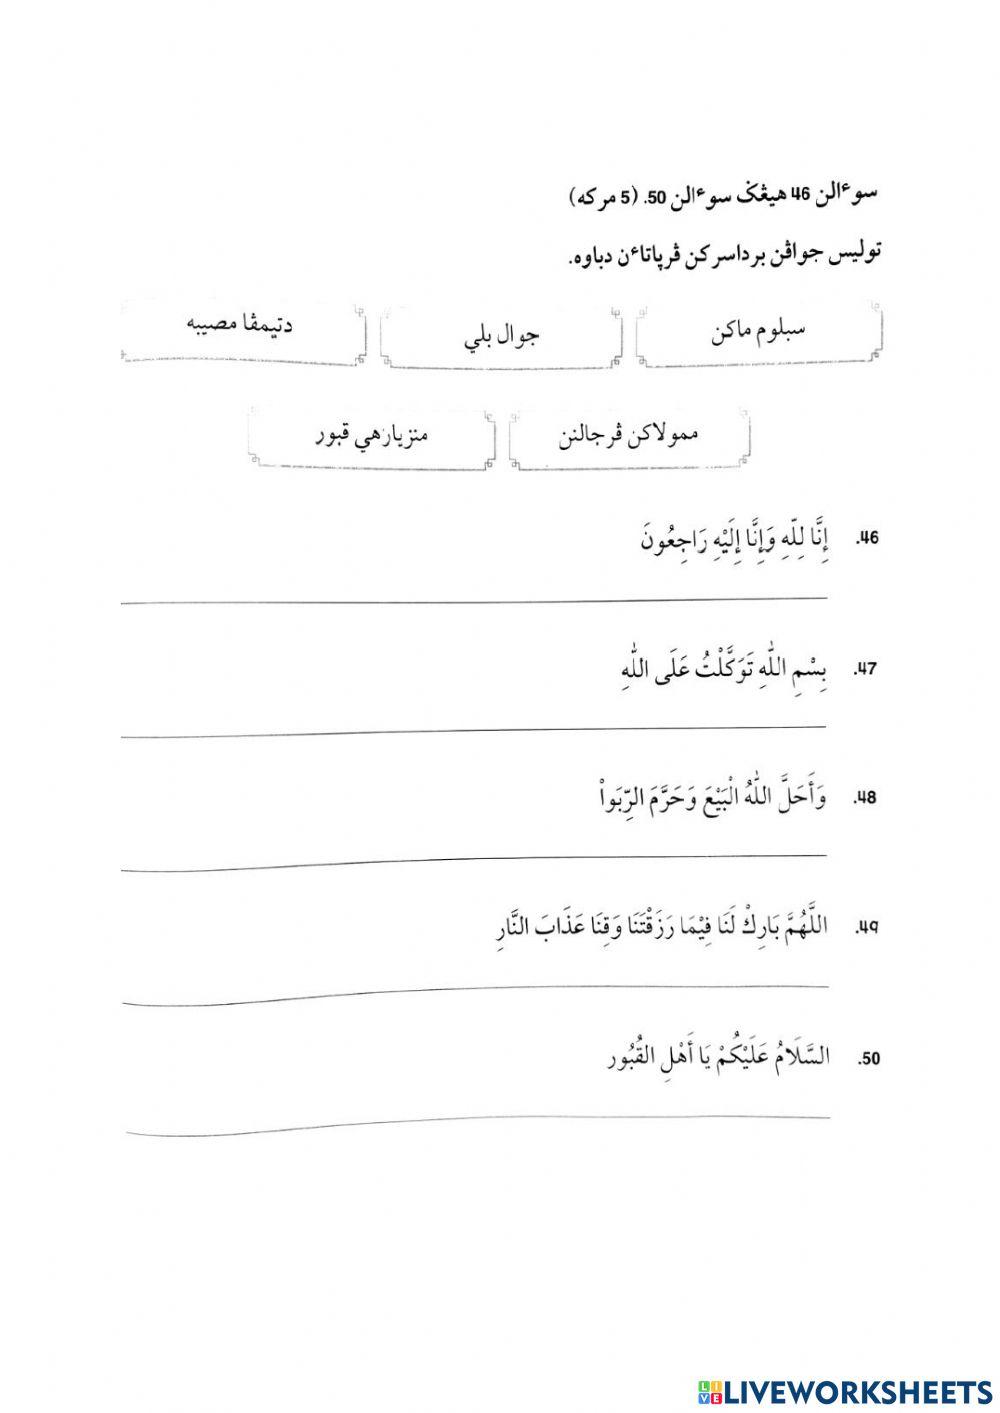 سوءالن 46 هيڠݢ سوءالن 50. (5 مركه)
توليس جواڤن برداسركن ڤرڽاتاءن دباوه.
سبلوم ماكن
جوال بلي
دتيمڤا مصيبه
ممولاكن ڤرجالنن
منزيارهي قبور
46. إِنَّا لِلّهِ وَإِنَّا إِلَيْهِ رَاجِعُونَ
47. بِسْمِ اللّٰهِ تَوَكَّلْتُ عَلَى اللّٰهِ
48. وَأَحَلَّ اللّٰهُ الْبَيْعَ وَحَرَّمَ الرِّبَواْ
49. اللَّهُمَّ بَارِكْ لَنَا فِيْمَا رَزَقْتَنَا وَقِنَا عَذَابَ النَّارِ
50. السَّلَامُ عَلَيْكُمْ يَا أَهْلِ القُبُور
LIVEWORKSHEETS